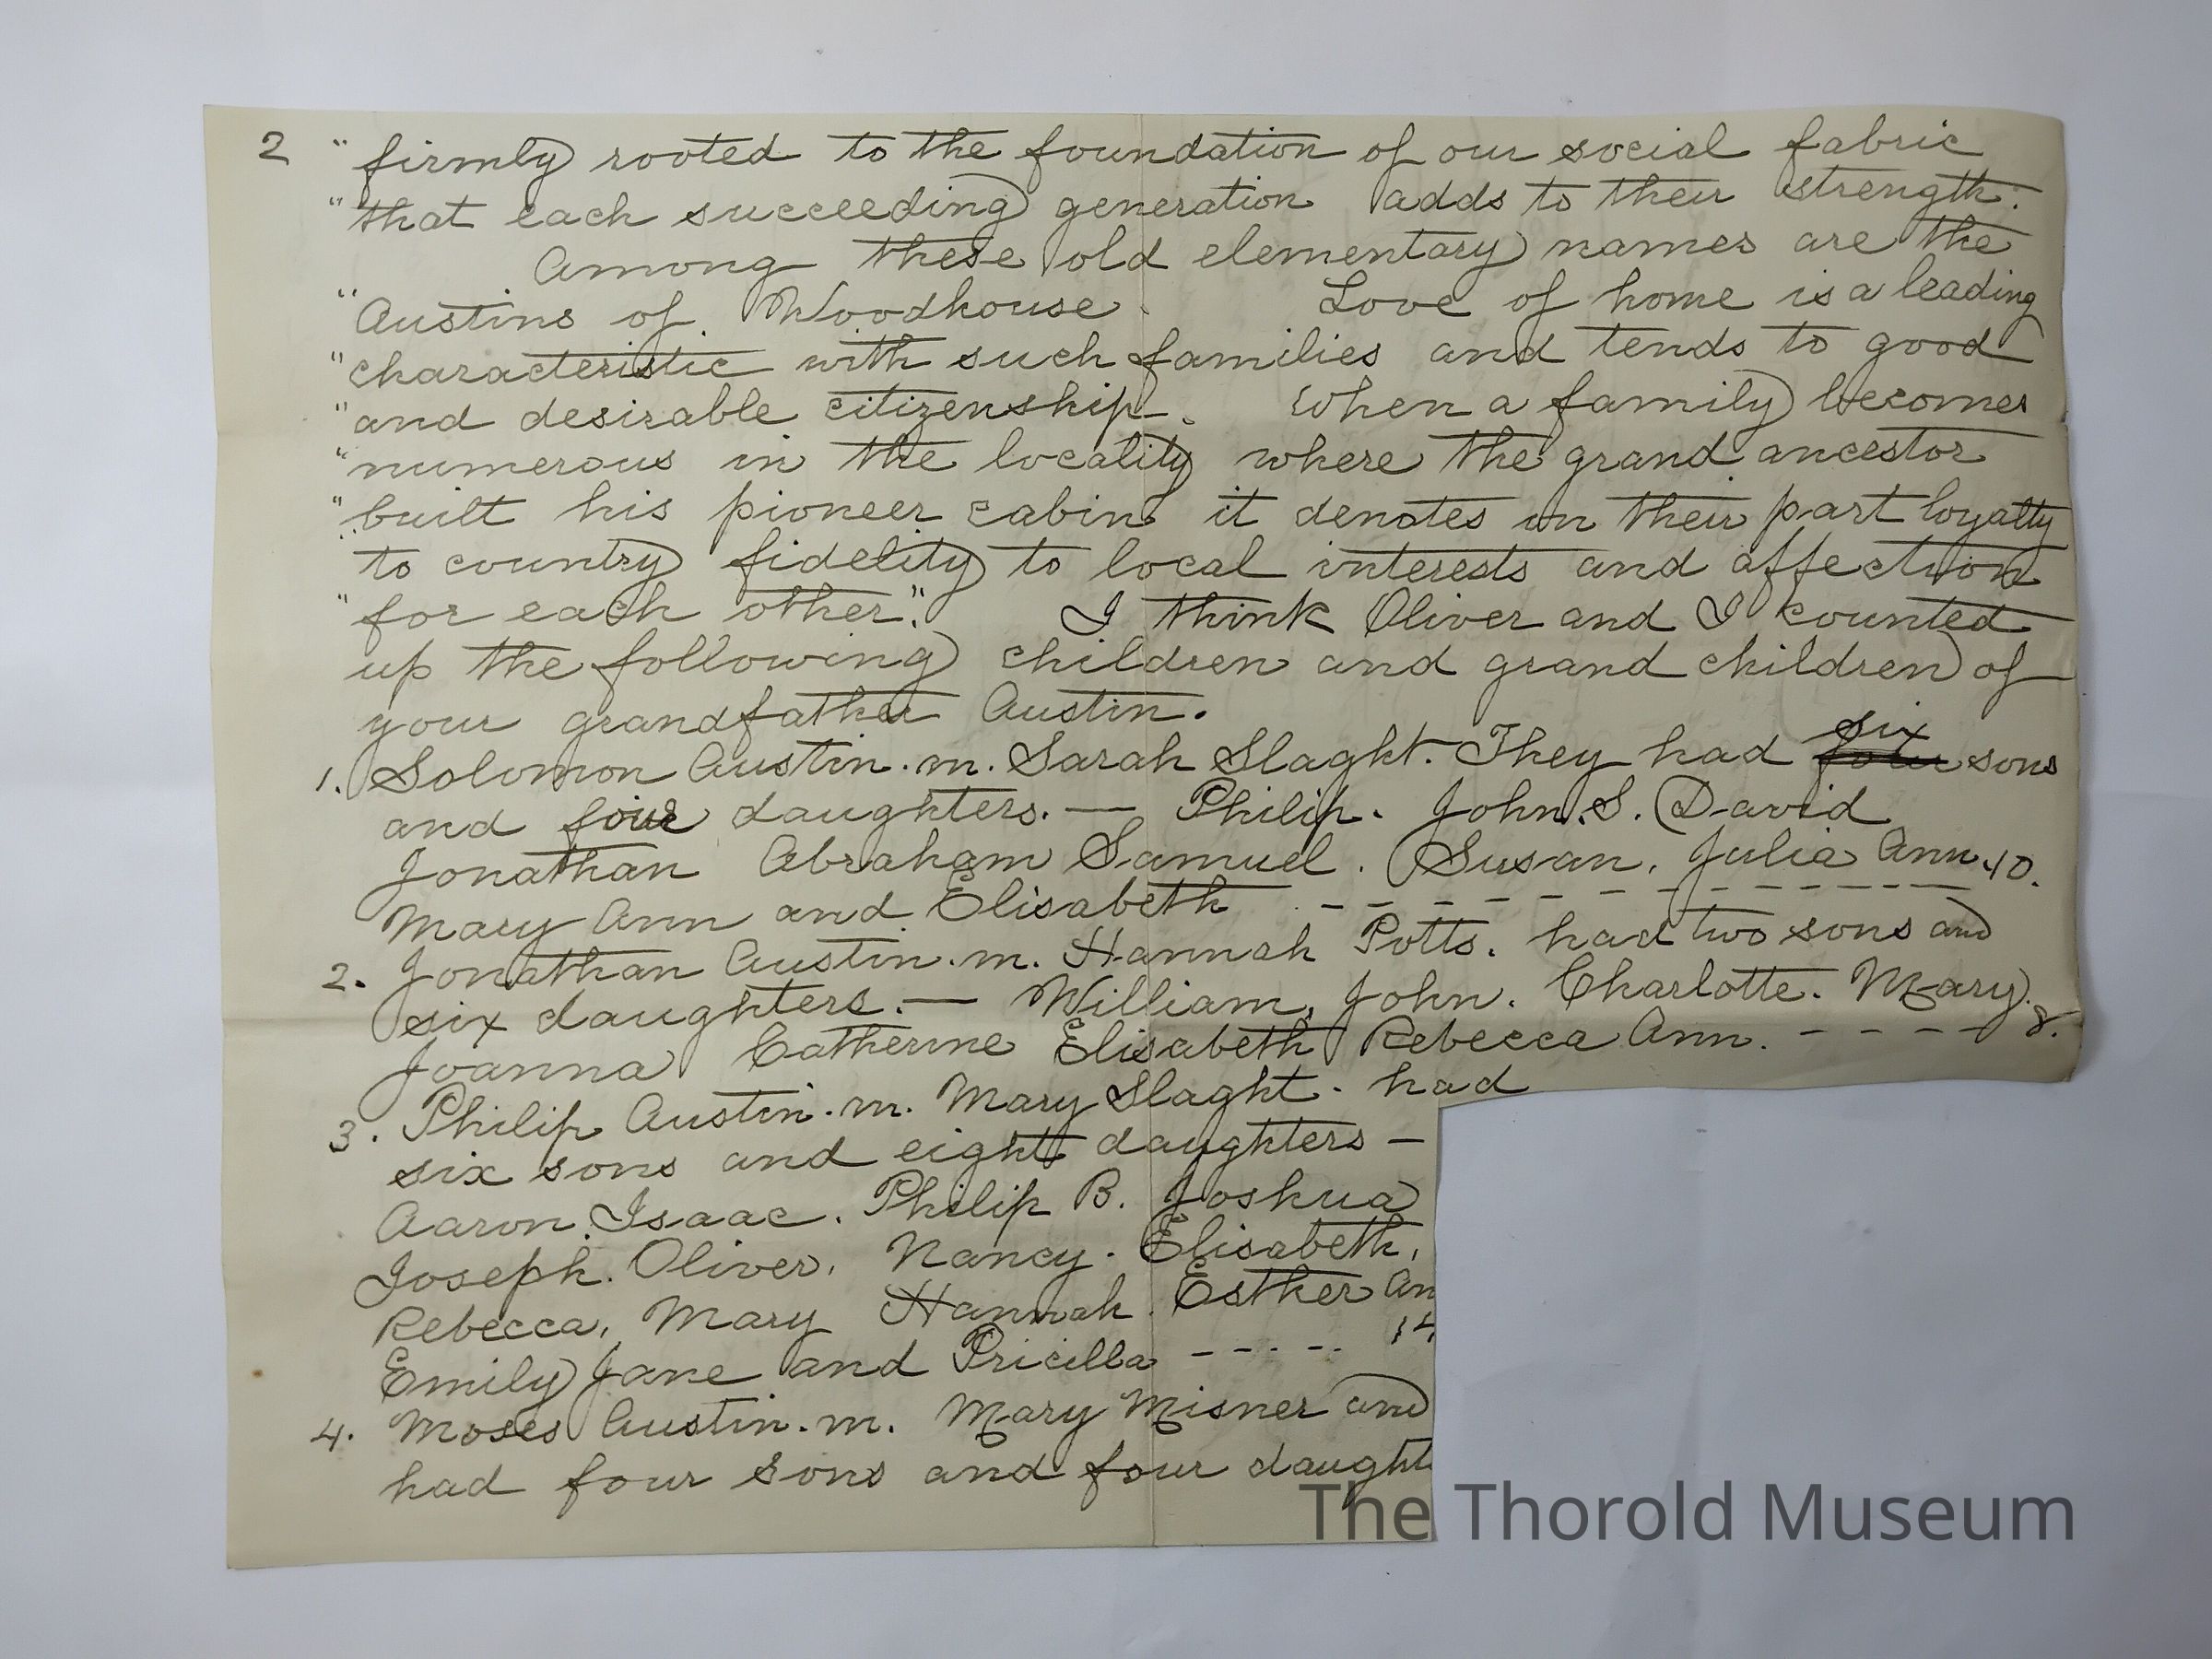 2 "firmly rooted to the foundation of our social fabric
"that each succeeding generation adds to their strength.
Among these old elementary names are the
"Austins of Woodhouse. Love of home is a leading
"characteristic with such families and tends to good
"and desirable citizenship. When a family becomes
"numerous in the locality where the grand ancestor
"built his pioneer cabin it denotes on their part loyalty
to country fidelity to local interests and affection
"for each other". I think Oliver and I counted
up the following children and grand children of
your grandfather Austin.
six
1. Solomon Austin. m. Sarah Slaght. They had four sons
and four daughters. — Philip. John. S. David
Jonathan Abraham Samuel. Susan. Julia Ann. 10.
Mary Ann and Elisabeth - - - - - - - - - - -
2. Jonathan Austin. m. Hannah Potts. had two sons and
six daughters. — William, John. Charlotte. Mary.
Joanna Catherine Elisabeth Rebecca Ann. - - - - 8.
3. Philip Austin. m. Mary Slaght. had
six sons and eight daughters —
Aaron. Isaac. Philip B. Joshua
Joseph. Oliver. Nancy. Elisabeth.
Rebecca, Mary Hannah. Esther An
Emily Jane and Pricilla - - - - - 14
4. Moses Austin. m. Mary Misner and
had four sons and four daught
The Thorold Museum